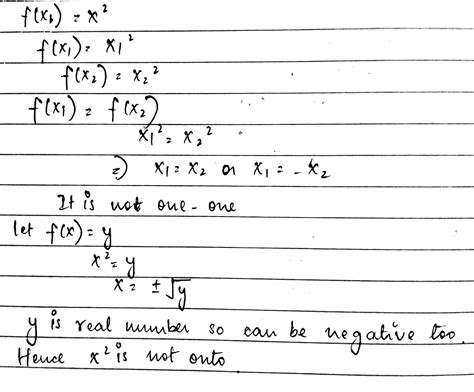 f(x) = x²
f(x₁) = x₁²
f(x₂) = x₂²
f(x₁) = f(x₂)
x₁² = x₂²
⇒) x₁ = x₂ or x₁ = -x₂
It is not one-one
let f(x) = y
x² = y
x = ±√y
y is real number so can be negative too.
Hence x² is not onto